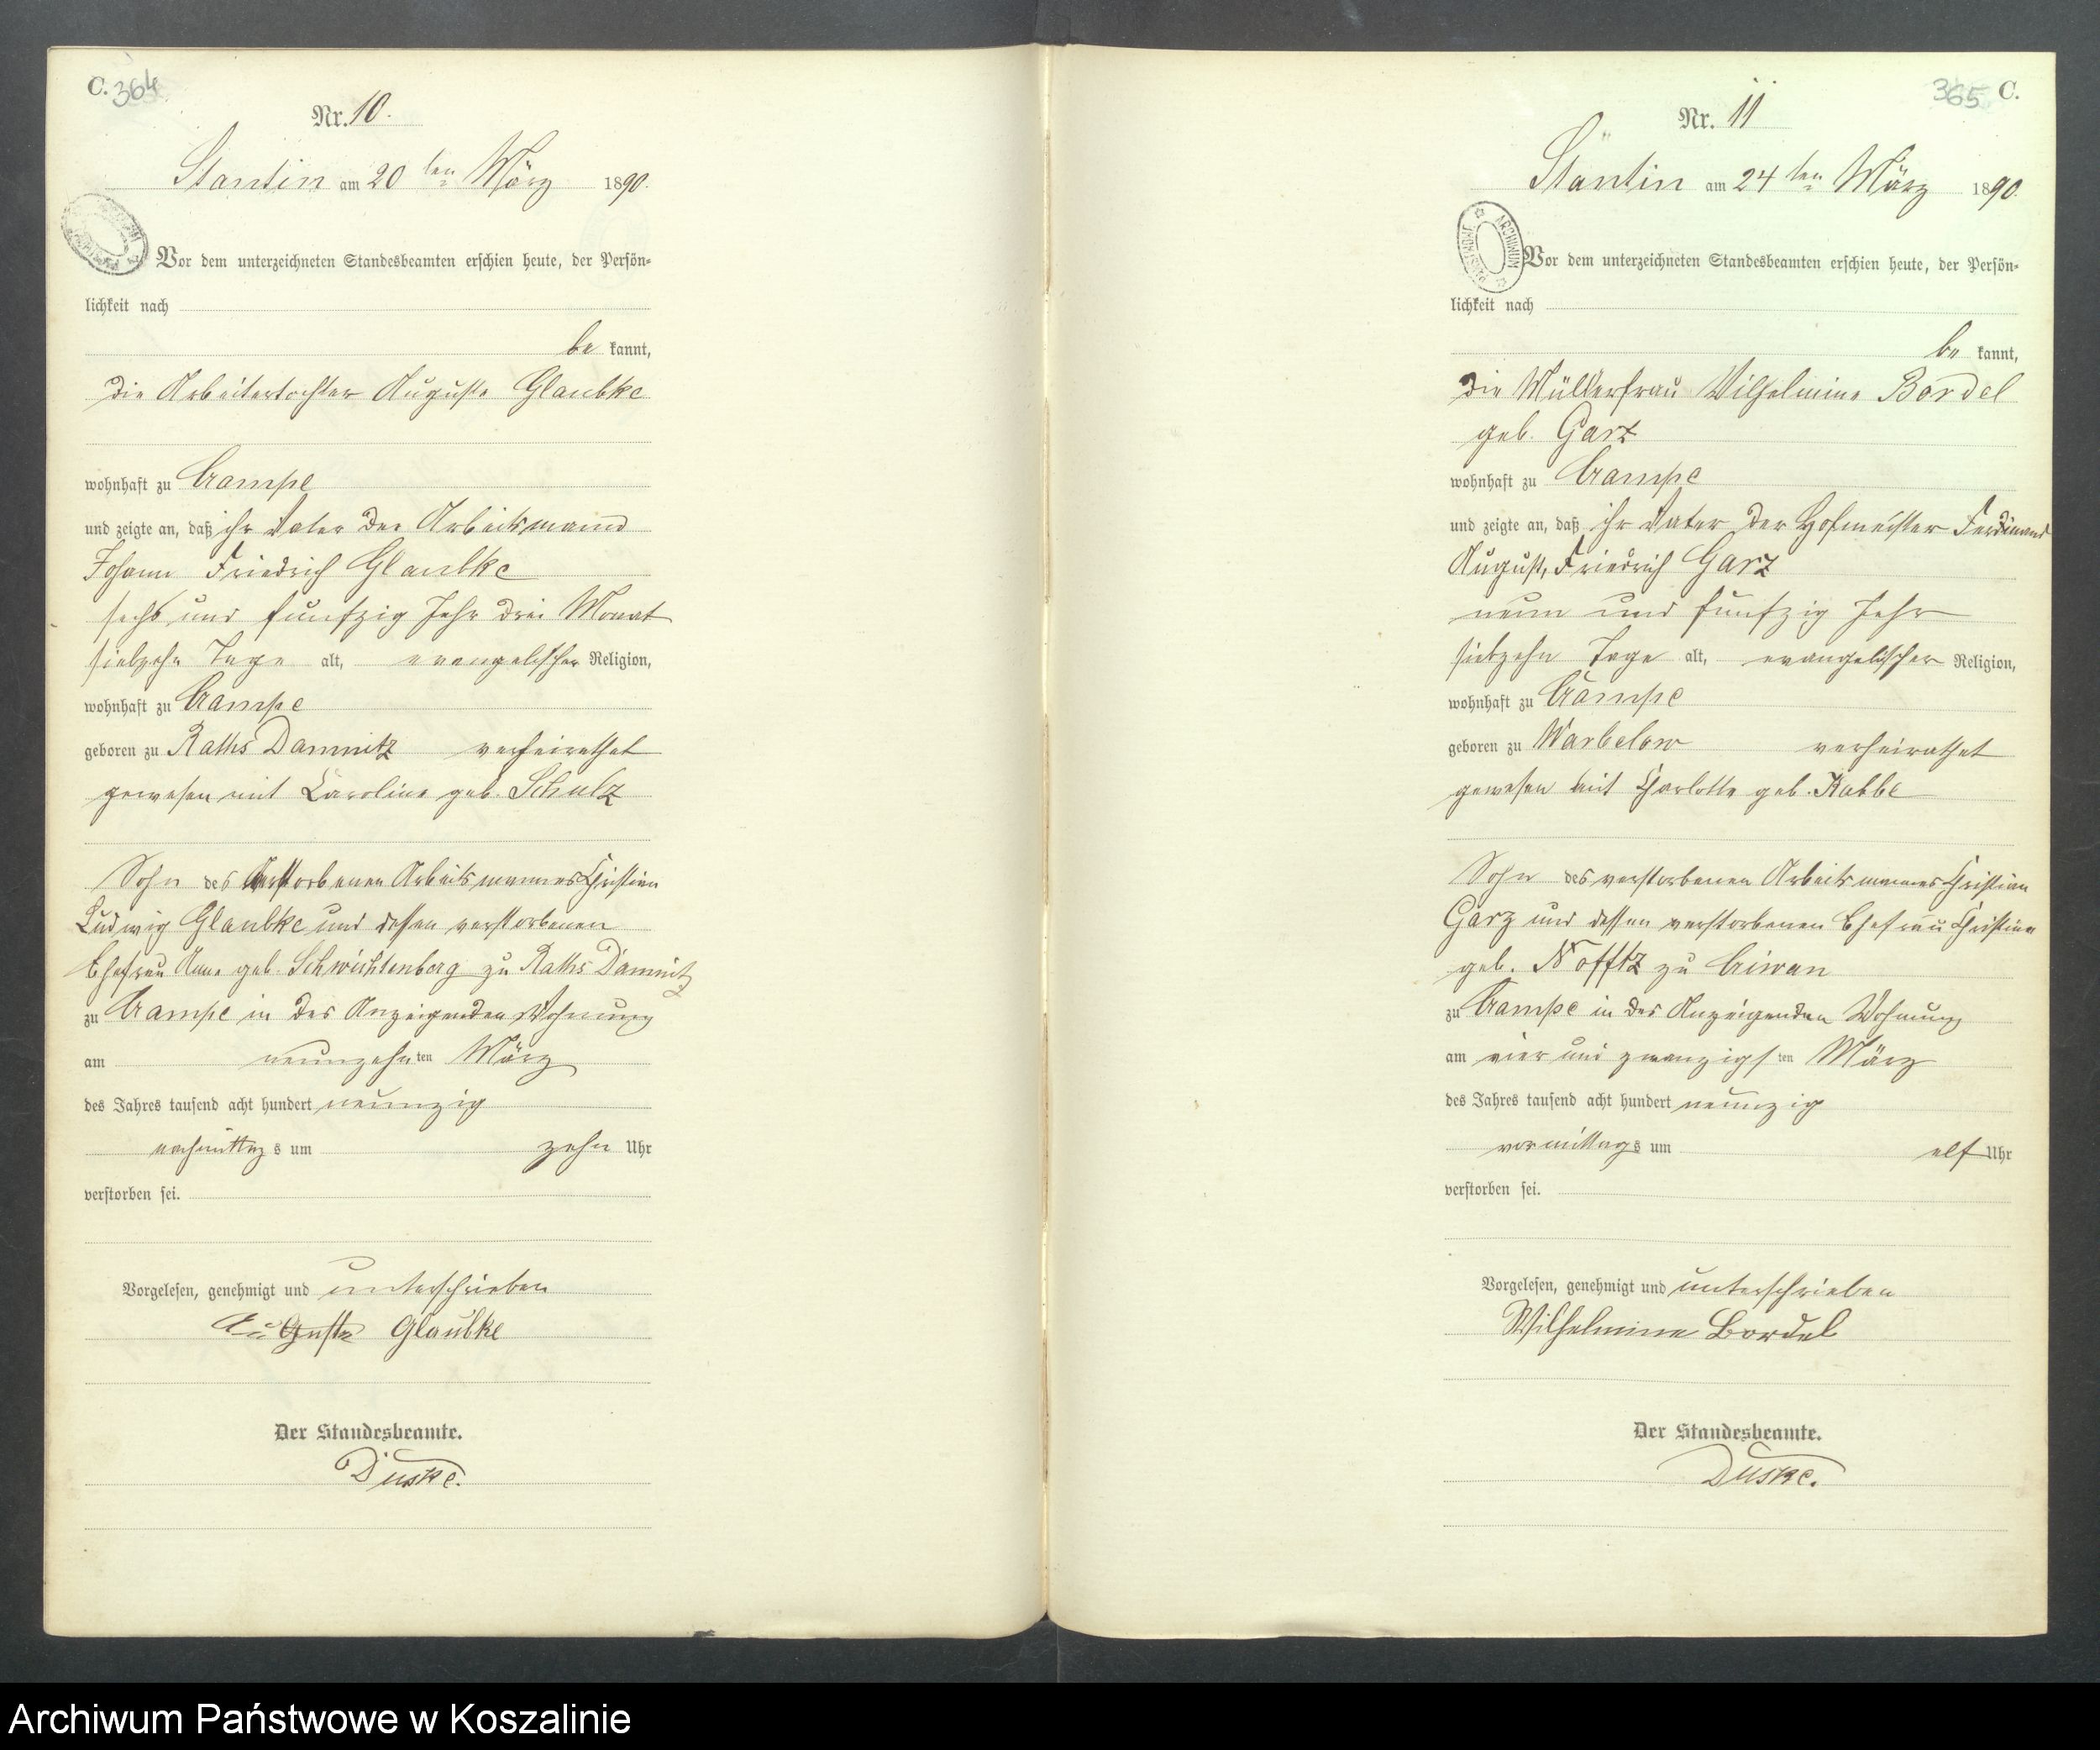 C. 364
Nr. 10.
Stantin am 20 ten März 1890.
Vor dem unterzeichneten Standesbeamten erschien heute, der Persön-
lichkeit nach
be kannt,
die Arbeitertochter Auguste Glaubke
wohnhaft zu Crampe
und zeigte an, daß ihr Vater der Arbeitsmann
Johann Friedrich Glaubke
sechs und funfzig Jahr drei Monat
siebzehn Tage alt, evangelischer Religion,
wohnhaft zu Crampe
geboren zu Raths Damnitz verheirathet
gewesen mit Caroline geb. Schulz
Sohn des verstorbenen Arbeitsmannes Christian
Ludwig Glaubke und dessen verstorbenen
Ehefrau Anna geb. Schwichtenberg zu Raths Damnitz
zu Crampe in der Anzeigenden Wohnung
am neunzehnten März
des Jahres tausend acht hundert neunzig
nachmittags um zehn Uhr
verstorben sei.
Vorgelesen, genehmigt und unterschrieben
Auguste Glaubke
Der Standesbeamte.
Duske.
365 C.
Nr. 11
Stantin am 24 ten März 1890.
ARCHIWUM
Vor dem unterzeichneten Standesbeamten erschien heute, der Persön-
lichkeit nach
be kannt,
die Müllerfrau Wilhelmine Bordel
geb. Garz
wohnhaft zu Crampe
und zeigte an, daß ihr Vater der Hofmeister Ferdinand
August, Friedrich Garz
neun und funfzig Jahr
siebzehn Tage alt, evangelischer Religion,
wohnhaft zu Crampe
geboren zu Warbelow verheirathet
gewesen mit Charlotte geb. Kabbe
Sohn des verstorbenen Arbeitsmannes Christian
Garz und dessen verstorbenen Ehefrau Christine
geb. Nofftz zu Criwan
zu Crampe in der Anzeigenden Wohnung
am vier und zwanzigsten März
des Jahres tausend acht hundert neunzig
vormittags um elf Uhr
verstorben sei.
Vorgelesen, genehmigt und unterschrieben
Wilhelmine Bordel
Der Standesbeamte.
Duske.
Archiwum Państwowe w Koszalinie